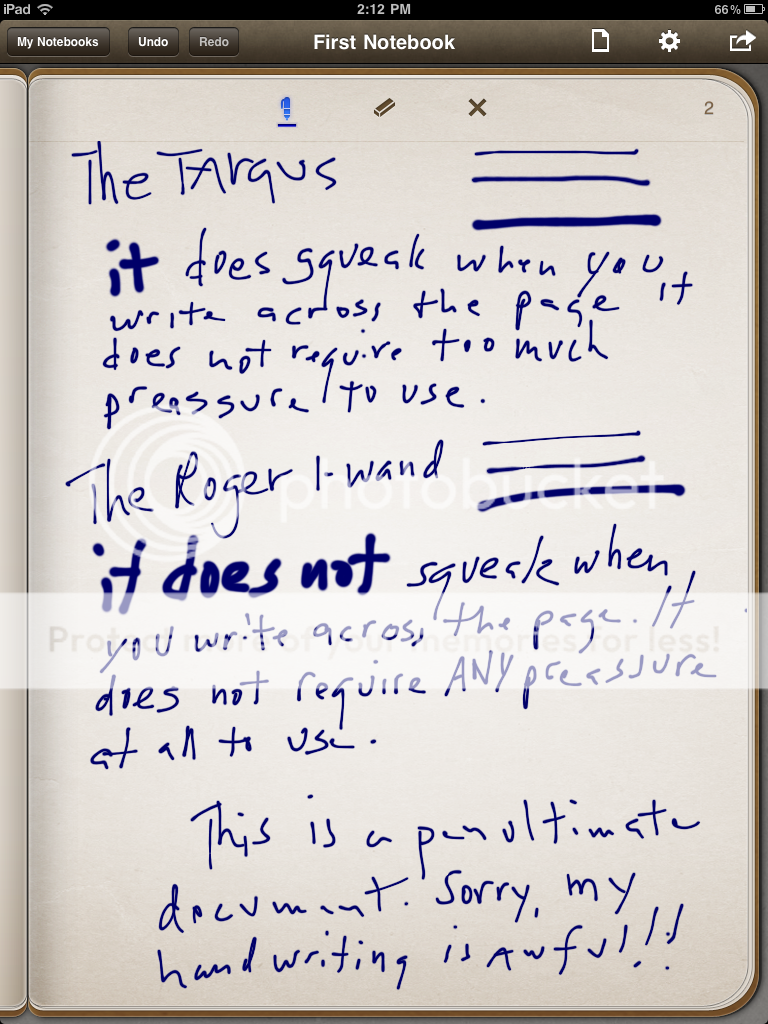 iPad 2:12 PM 66%
My Notebooks Undo Redo First Notebook
2
The TArgus
it does sqveak when you it
write across the page
does not require too much
preassure to use.
The Roger I-wand
photobucket
it does not squeak when
you write across the page. It
Protect more of your memories for less!
does not require ANY preassure
at all to use.
This is a penultimate
document. Sorry, my
handwriting is Awful!!!